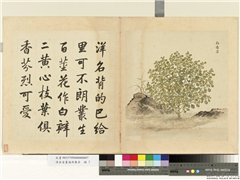 洋名背的巴給
里可不朗叢生
百莖花作白瓣
二黃心枝葉俱
香芬烈可愛